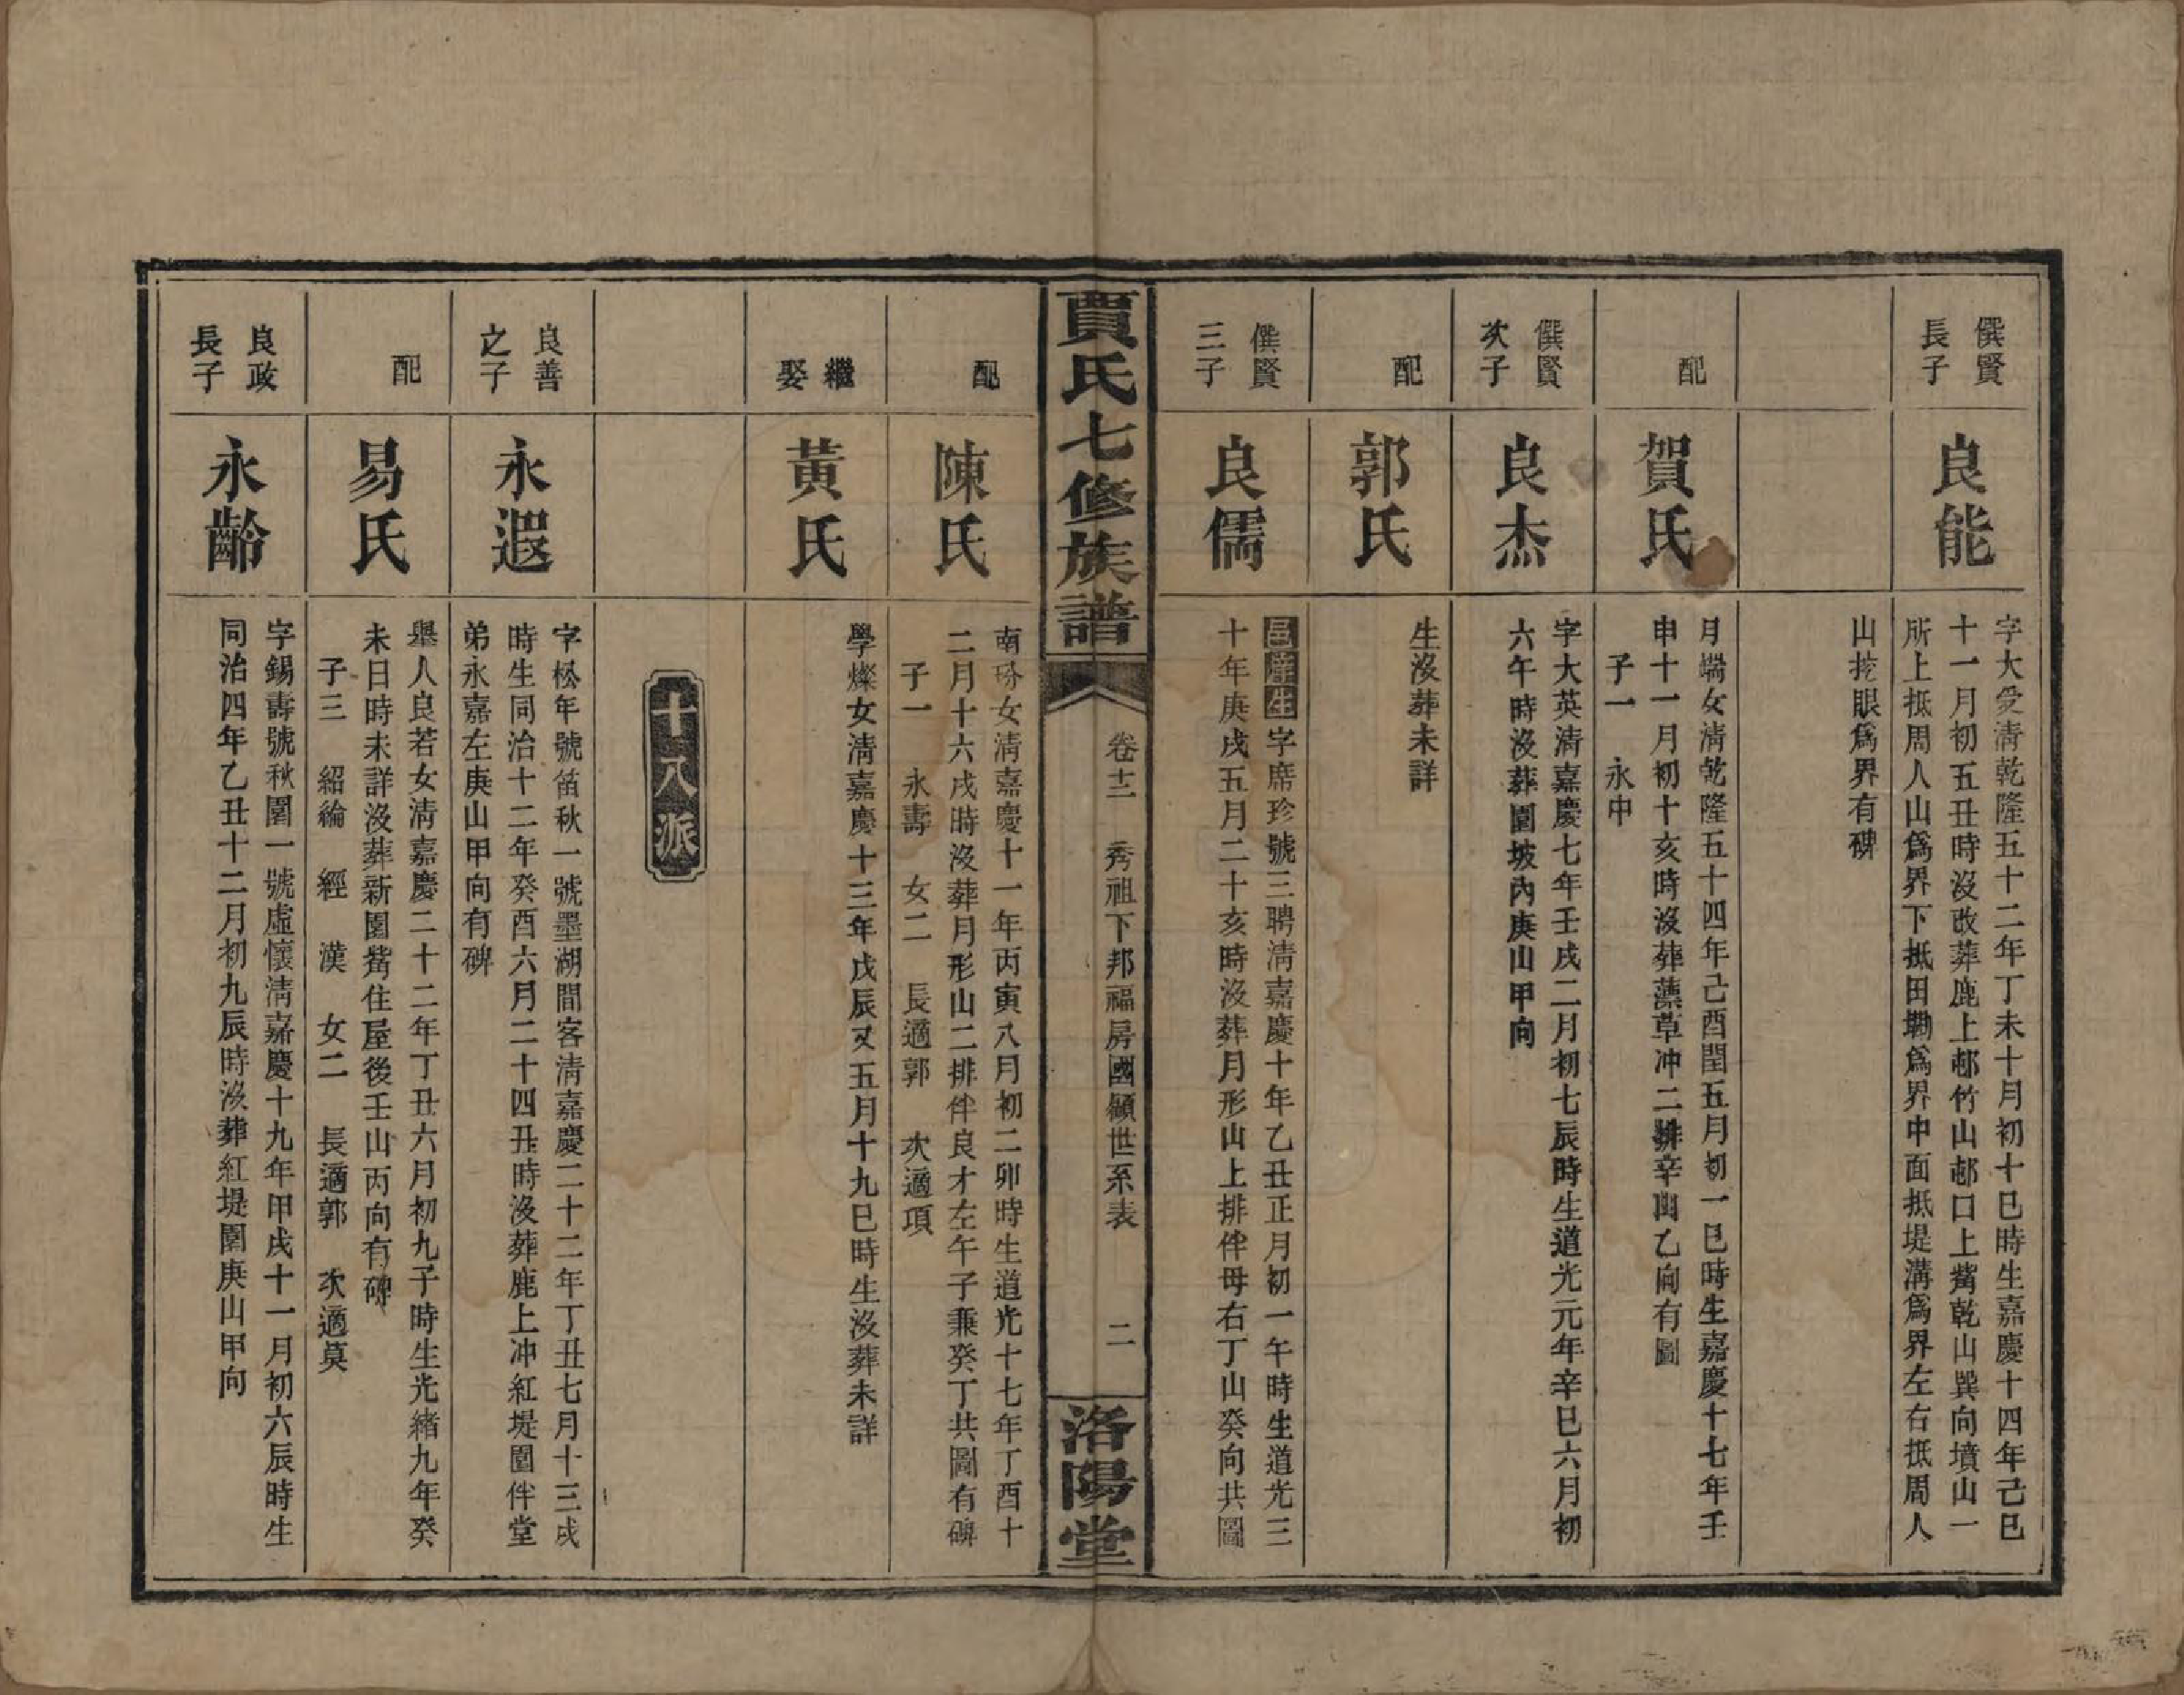 僎賢
長子
良能
字大受淸乾隆五十二年丁未十月初十巳時生嘉慶十四年己巳
十一月初五丑時沒改葬鹿上邨竹山邨口上觜乾山巽向墳山一
所上抵周人山爲界下抵田墈爲界中面抵堤溝爲界左右抵周人
山挖眼爲界有碑
配
賀氏
月端女淸乾隆五十四年己酉閏五月初一巳時生嘉慶十七年壬
申十一月初十亥時沒葬藁草冲二排辛山乙向有圖
子一 永中
僎賢
次子
良杰
字大英淸嘉慶七年壬戌二月初七辰時生道光元年辛巳六月初
六午時沒葬園坡內庚山甲向
配
郭氏
生沒葬未詳
僎賢
三子
良儒
邑庠生字席珍號三聘淸嘉慶十年乙丑正月初一午時生道光三
十年庚戌五月二十亥時沒葬月形山上排伴母右丁山癸向共圖
賈氏七修族譜
卷十二 秀祖下邦福房國顯世系表 二
洛陽堂
配
陳氏
南玢女淸嘉慶十一年丙寅八月初二卯時生道光十七年丁酉十
二月十六戌時沒葬月形山二排伴良才左午子兼癸丁共圖有碑
子一 永壽 女二 長適郭 次適項
繼
娶
黃氏
學燦女淸嘉慶十三年戊辰又五月十九巳時生沒葬未詳
十八派
良善
之子
永遐
字松年號笛秋一號墨湖間客淸嘉慶二十二年丁丑七月十三戌
時生同治十二年癸酉六月二十四丑時沒葬鹿上冲紅堤圍伴堂
弟永嘉左庚山甲向有碑
配
易氏
舉人良若女淸嘉慶二十二年丁丑六月初九子時生光緖九年癸
未日時未詳沒葬新園觜住屋後壬山丙向有碑
子三 紹綸 經 漢 女二 長適郭 次適莫
良政
長子
永齡
字錫壽號秋圍一號虛懷淸嘉慶十九年甲戌十一月初六辰時生
同治四年乙丑十二月初九辰時沒葬紅堤圍庚山甲向